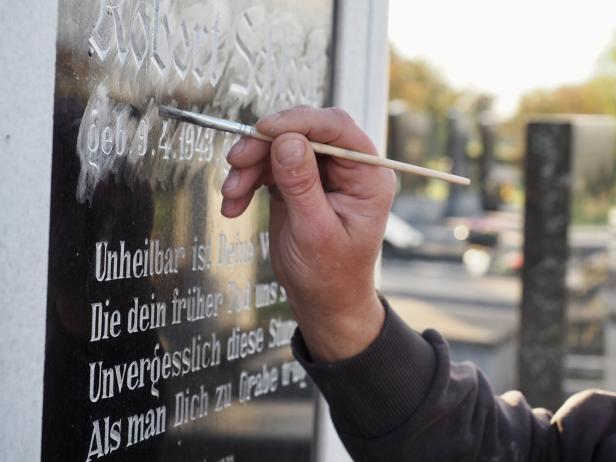 Robert
geb. 9.4.1943
Unheilbar ist Deine
Die dein früher Tod uns
Unvergesslich diese
Als man Dich zu Grabe